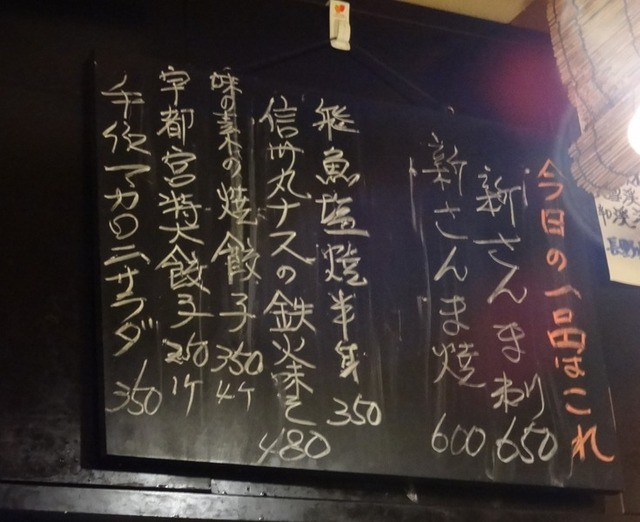 今日の一品はこれ
新さんま刺 650
新さんま焼 600
飛魚塩焼半身 350
信州丸ナスの鉄火味そ 480
味の素の焼餃子 350 4ケ
宇都宮特大餃子 250 1ケ
手作マカロニサラダ 350